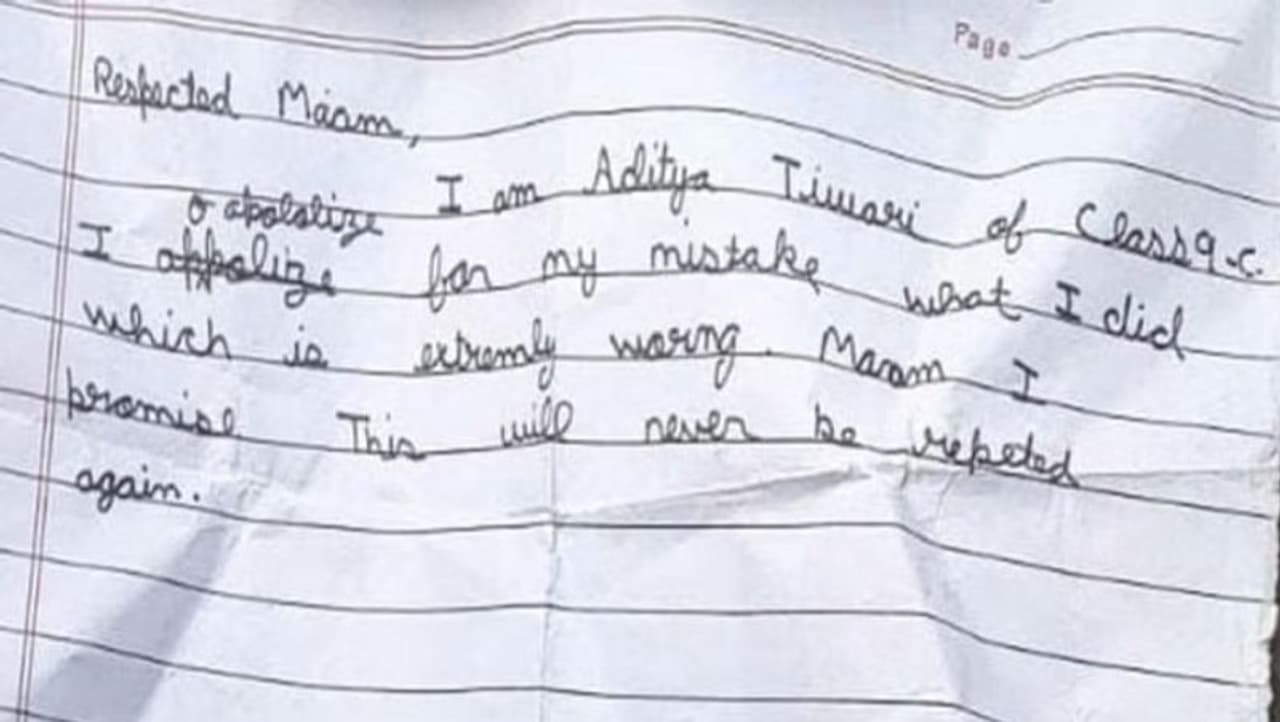 Page
Respected Maam,
I am Aditya Tiwari of Class 9-C.
apolotize
I appolize for my mistake what I did
which is extremly worng. Maam I
promise This will never be repeted
again.